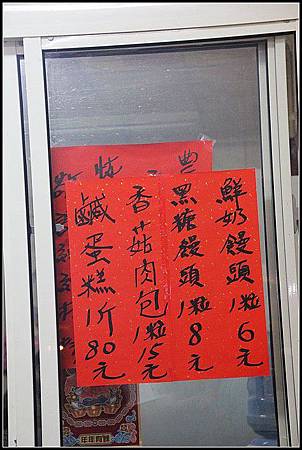 鮮奶饅頭1粒6元
黑糖饅頭1粒8元
香菇肉包1粒15元
鹹蛋糕1斤80元
年年有餘